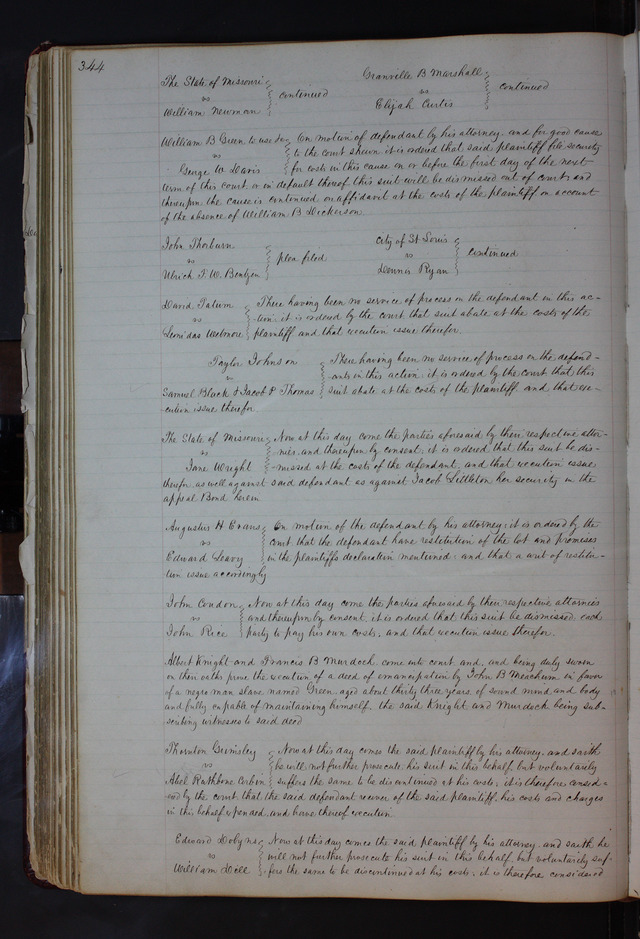 344
The State of Missouri
vs continued
William Newman
Granville B Marshall
vs continued
Elijah Curtis
William B Green to use &c On motion of defendant by his attorney. and for good cause
vs to the court shewn it is ordered that said plaintiff file security
George W Davis for costs in this cause on or before the first day of the next
term of this court or in default thereof this suit will be dismissed out of court; and
thereupon the cause is continued on affidavit at the costs of the plaintiff on account
of the absence of William B Dickerson
John Thorburn
vs plea filed
Ulrich F. W. Bentzen
City of St Louis
vs continued
Dennis Ryan
David Tatum There having been no service of process on the defendant in this ac-
vs tion: it is ordered by the court that suit abate at the costs of the
Leonidas Wetmore plaintiff and that execution issue therefor
Taylor Johnson There having been no service of process on the defend-
vs ants in this action, it is ordered by the court that this
Samuel Black & Jacob P Thomas suit abate at the costs of the plaintiff and that exe-
cution issue therefor
The State of Missouri Now at this day come the parties aforesaid by their respective attor-
vs nies. and thereupon by consent, it is ordered that this suit be dis-
Jane Wright missed at the costs of the defendant, and that execution issue
therefor. as well against said defendant as against Jacob Littleton her security in the
appeal Bond herein
Augustus H Evans On motion of the defendant by his attorney; it is ordered by the
vs court that the defendant have restitution of the lot and premises
Edward Leavy in the plaintiffs declaration mentioned: and that a writ of restitu-
tion issue accordingly
John Condon Now at this day come the parties aforesaid by their respective attornies
vs and thereupon by consent, it is ordered that this suit be dismissed each
John Rice party to pay his own costs, and that execution issue therefor.
Albert Knight and Francis B Murdoch. come into court and, and being duly sworn
on their oaths prove the execution of a deed of emancipation by John B Meachum in favor
of a negro man slave named Green. aged about thirty three years, of sound mind and body
and fully capable of maintaining himself. the said Knight and Murdock being sub-
scribing witnesses to said deed
Thornton Grimsley Now at this day comes the said plaintiff by his attorney. and saith
vs he will not further prosecute his suit in this behalf but voluntarily
Abel Rathbone Corbin suffers the same to be discontinued at his costs; it is therefore consid-
ered by the court that the said defendant recover of the said plaintiff. his costs and charges
in this behalf expended. and have thereof execution
Edward Dobyns Now at this day comes the said plaintiff by his attorney. and saith he
vs will not further prosecute his suit in this behalf. but voluntarily suf-
William Dell fers the same to be discontinued at his costs: it is therefore considered